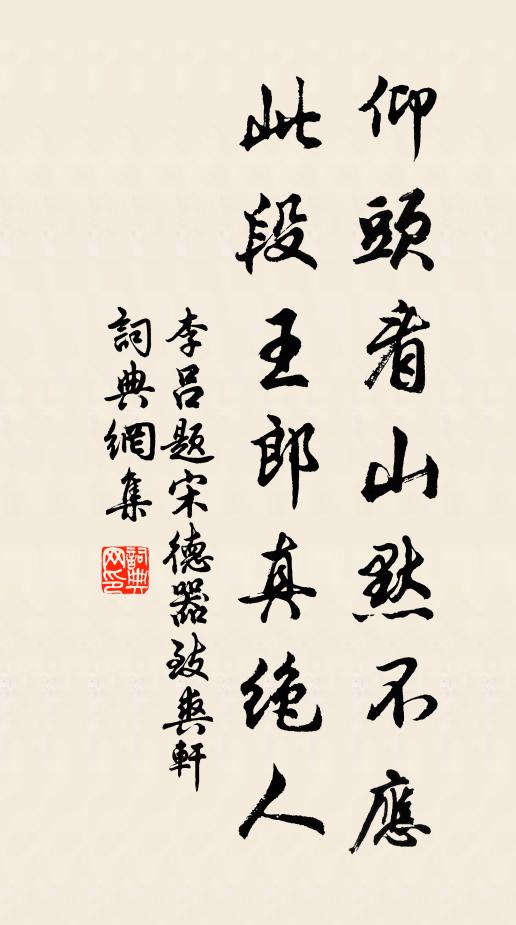 仰頭看山默不應
此段王郎真绝人
李吕题宋德器致爽軒
詞典網集
詞典网印